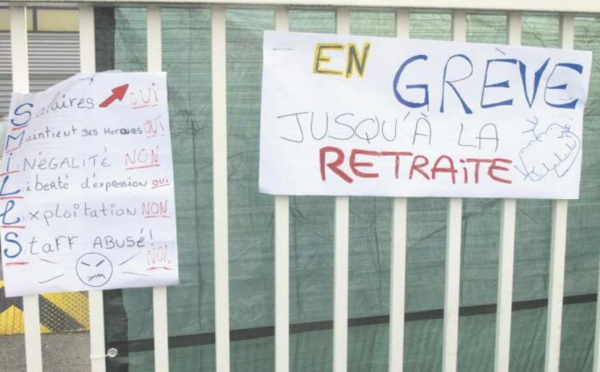 Salaires OUI
Maintient des Horaires OUI
Inégalité NON
Liberté d'expression OUI
Exploitation NON
Staff ABUSÉ! NON
EN GRÈVE
JUSQU'À LA
RETRAITE